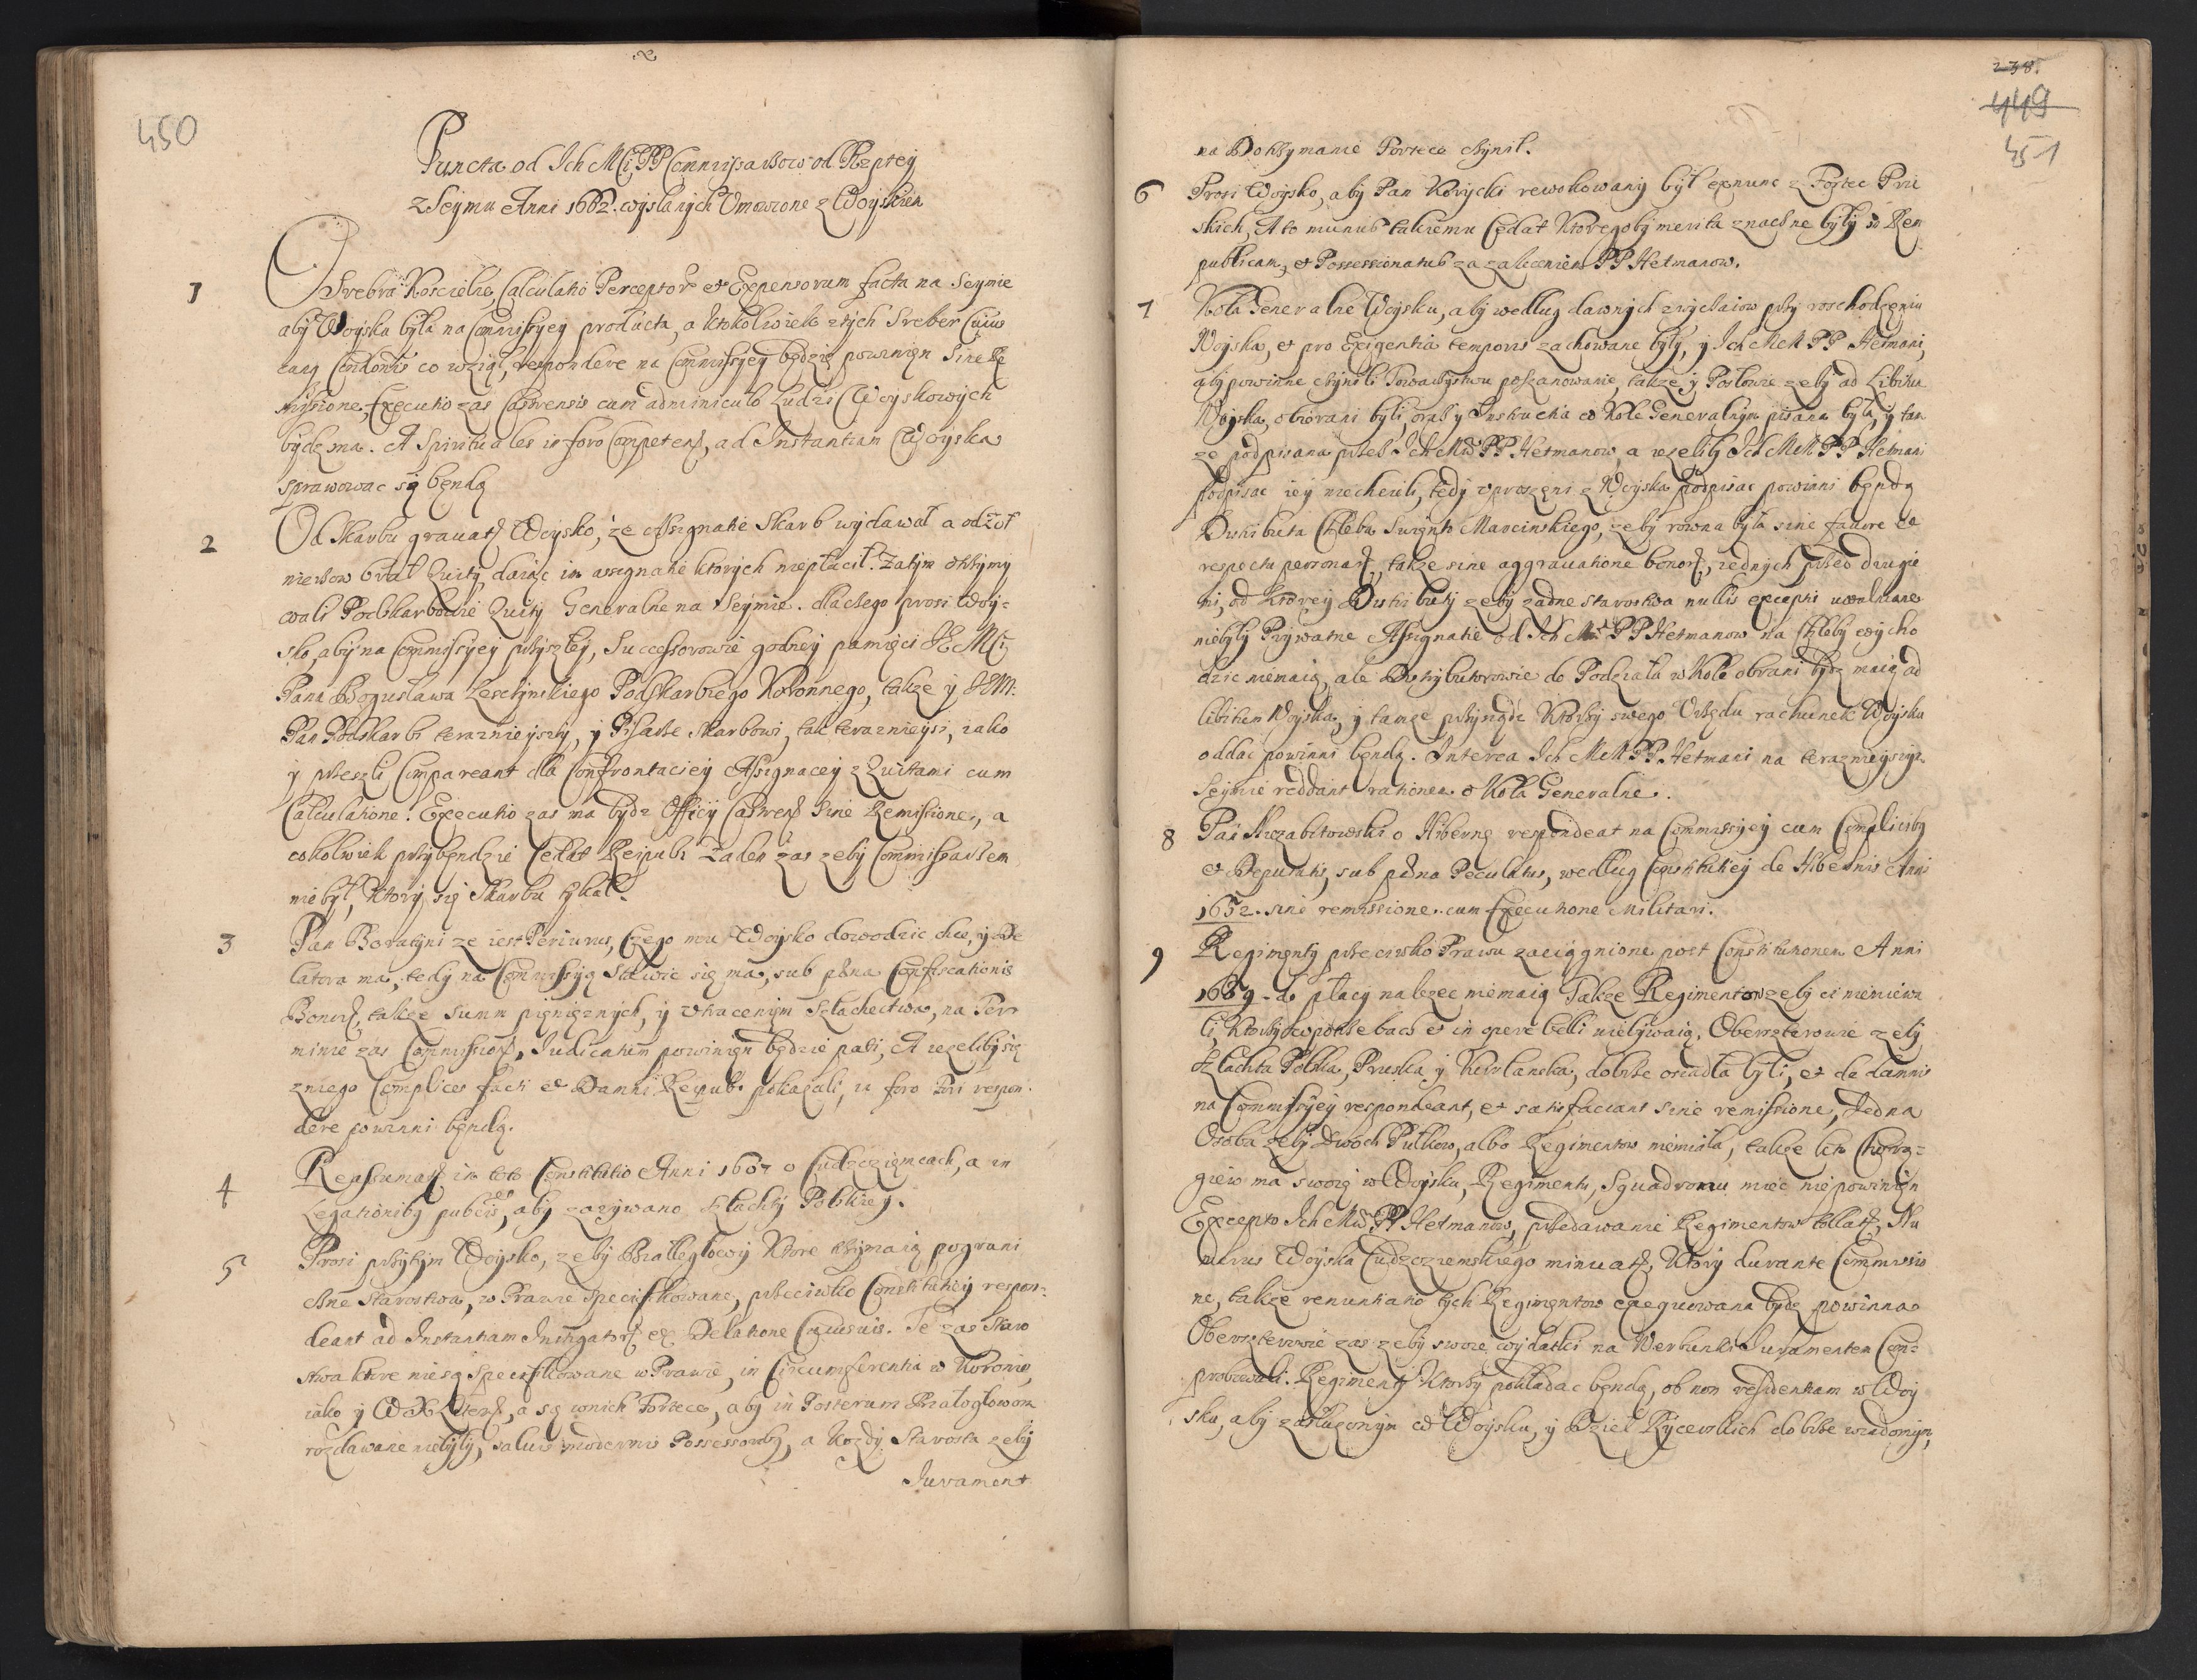 450
Puncta od Ich Mci PP Commissarzow od Rzptey
z Seymu Anni 1662. wysłanych Vmowione z Woyskiem
1 O Srebra Koscielne Calculatio Perceptor et Expensorum facta na Seymie
aby Woysku była na Commissyey producta, a ktokolwiek z tych Sreber
co wziął, respondere na Commissyey będzie powinien Sine Re
missione, Executio zas Castrensis cum adminiculo Ludzi Woyskowych
bydz ma. A Spirituales in foro Competenti, ad Instantiam Woyska
sprawowac się będą
2 Od Skarbu gravatur Woysko, że Assignatie Skarb wydawał a od Żoł
nierzow brał Quity, daiąc im assignatie ktorych niepłacił. Zatym otrzymy
wali Podskarbowie Quity Generalne na Seymie. dlaczego prosi Woy=
sko, aby na Commissyey przyszłey, Successorowie godney pamięci JE Mci
Pana Bogusława Leszczynskiego Podskarbiego Koronnego, także y JEM.
Pan Podskarbi teraznieyszy, y Pisarze Skarbowi, tak teraznieysi, iako
y przeszli Compareant dla Confrontaciey Assignacey z Quitami cum
Calculatione. Executio zas ma bydz Officij Castrens Sine Remissione, a
cokolwiek przybendzie Cedat Reipub: Żaden zas zeby Commissarzem
niebył, ktory się Skarbu tykał.
3 Pan Boratyni ze iest Periurus, Czego mu Woysko dowodzic chce, y De
latora ma, tedy na Commissyą Stawic się ma, sub pœna Confiscationis
Bonor, także Summ pięnięznych, y vtracenięm Szlachectwa, na Ter
minie zas Commission, Iudicatum powinięn będzie pati, A iezeliby się
z niego Complices facti et Damni Reipub. pokazali, in foro Fori respon-
dere powinni bęndą.
4 Reassumat in toto Constitutio Anni 1607 o Cudzoziemcach, a in
Legationibg publicis, aby zazywano Szlachty Polskiey.
5 Prosi przytym Woysko, zeby Białległowy Ktore trzymaią pograni
czne Starostwa, w Prawie specifikowane, przeciwko Constitutiey respon-
deant ad Instantiam Instigator ex Delatione Cuiusuis. Te zas Staro
stwa ktore niesą Specifikowane w Prawie, in Circumferentia w Koronie,
iako y WXLiters, a są w nich Fortece, aby in Posterum Białogłowom
rozdawane niebyły, saluis modernis Possessoribg, a Kozdy Starosta zeby
Jurament
238.
449
451
na Dotrzymanie Fortece czynił.
6 Prosi Woysko, aby Pan Korycki rewokowany był exnunc z Fortec Pru
skich, A to munus takiemu Cedat Ktoregoby merita znaczne były in Rem
publicam, et Possessionatus za zaleceniem PP Hetmanow.
7 Koła Generalne Woysku, aby według dawnych zwyczaiow przy roschodzeniu
Woyska, et pro Exigentia temporis zachowane były, y Ich Mcm PP Hetmani,
aby powinne czynili Towarzystwu poszanowanie, także y Posłowie zeby ad Libitum
Woyska obierani byli, oraz y Instructia w Kole Generalnym pisana była, y tam
ze podpisana przez Ich Mciow PP Hetmanow, a iezeliby Ich Mcm PP Hetmani
podpisac iey niechcieli, tedy vproszęni z Woyska podpisac powinni bęndą
Distributa Chleba Swięnto Marcinskiego, zeby rowna była sine fauore et
respectu personar, także sine aggrauatione bonor, iednych przed drugie
mi, od Ktorey Distributy zeby zadne Starostwa nullis exceptis uwalniane
niebyły Prywatne Assignatie od Ich Mciow PP Hetmanow na Chleby wycho
dzic niemaią, ale Distributorowie do Podziału w Kole obrani bydz maią ad
libitum Woyska, y tamze przysiądz Ktorzy swego Vrzędu rachunek Woysku
oddac powinni bęndą. Interea Ich Mcm PP. Hetmani na teraznieyszym
Seymie reddant rationem o Koła Generalne.
8 Pan Niezabitowski o Hibernę respondeat na Commissyey cum Complicibg
et Deputatis, sub pœna Peculatus, według Constitutiey de Hibernis Anni
1652. sine remissione cum Executione Militari.
9 Regimęnty przeciwko Prawu zaciągnione post Constitutionem Anni
1659 do płacy nalezec niemaią Także Regimentow zeby ci niemiewa
li, Ktorzy w potrzebach et in opere belli niebywaią. Oberszterowie zeby
Szlachta Polska, Pruska y Kurlanska, dobrze osiadła byli, et de damnis
na Commissyey respondeant, et satisfaciant sine remissione, Jedna
Osoba zeby dwoch Pułkow, albo Regimentow niemiała, także kto Chorą=
giew ma swoię w Woysku, Regimentu, Squadronu miec niepowinięn
Excepto Ich Mciow PP Hetmanow, przedawanie Regimentow tollat, Nu
merus Woyska Cudzoziemskiego minuat, Ktory durante Commissio
ne, także renuntiatio tych Regimęntow exequowana bydz powinna.
Oberszterowie zas zeby swoie wydatki na Werbunki Juramentem Com=
probowali. Regimenty Ktorzy pokładac bęndą, ob non residentiam w Woy
sku, aby zasłuzonym w Woysku, y Dzieł Rycerskich dobrze wiadomym,